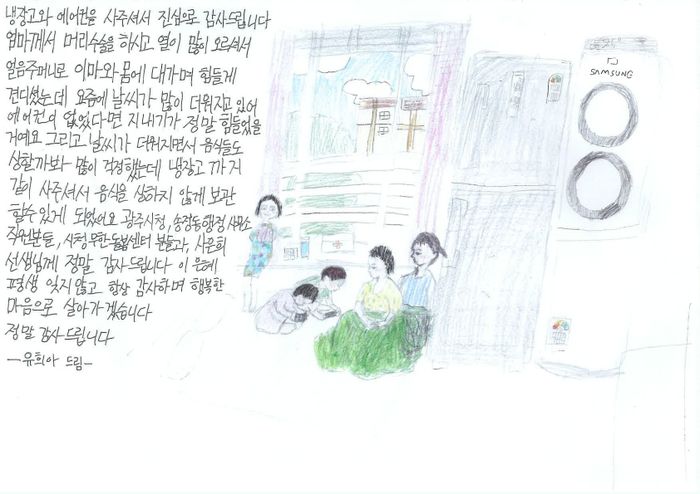 냉장고와 에어컨을 사주셔서 진심으로 감사드립니다
엄마께서 머리수술을 하시고 열이 많이 오르셔서
얼음주머니로 이마와 몸에 대가며 힘들게
견디셨는데 요즘에 날씨가 많이 더워지고 있어
에어컨이 없었다면 지내기가 정말 힘들었을
거예요 그리고 날씨가 더워지면서 음식들도
상할까봐 많이 걱정했는데 냉장고 까지
같이 사주셔서 음식을 상하지 않게 보관
할수 있게 되었어요 광주시청, 송정동행정 사무소
직원분들, 시청 무한돌봄센터 분들과, 사윤희
선생님께 정말 감사드립니다 이 은혜
평생 잊지않고 항상 감사하며 행복한
마음으로 살아가겠습니다
정말 감사 드립니다
-유희아 드림-
SAMSUNG